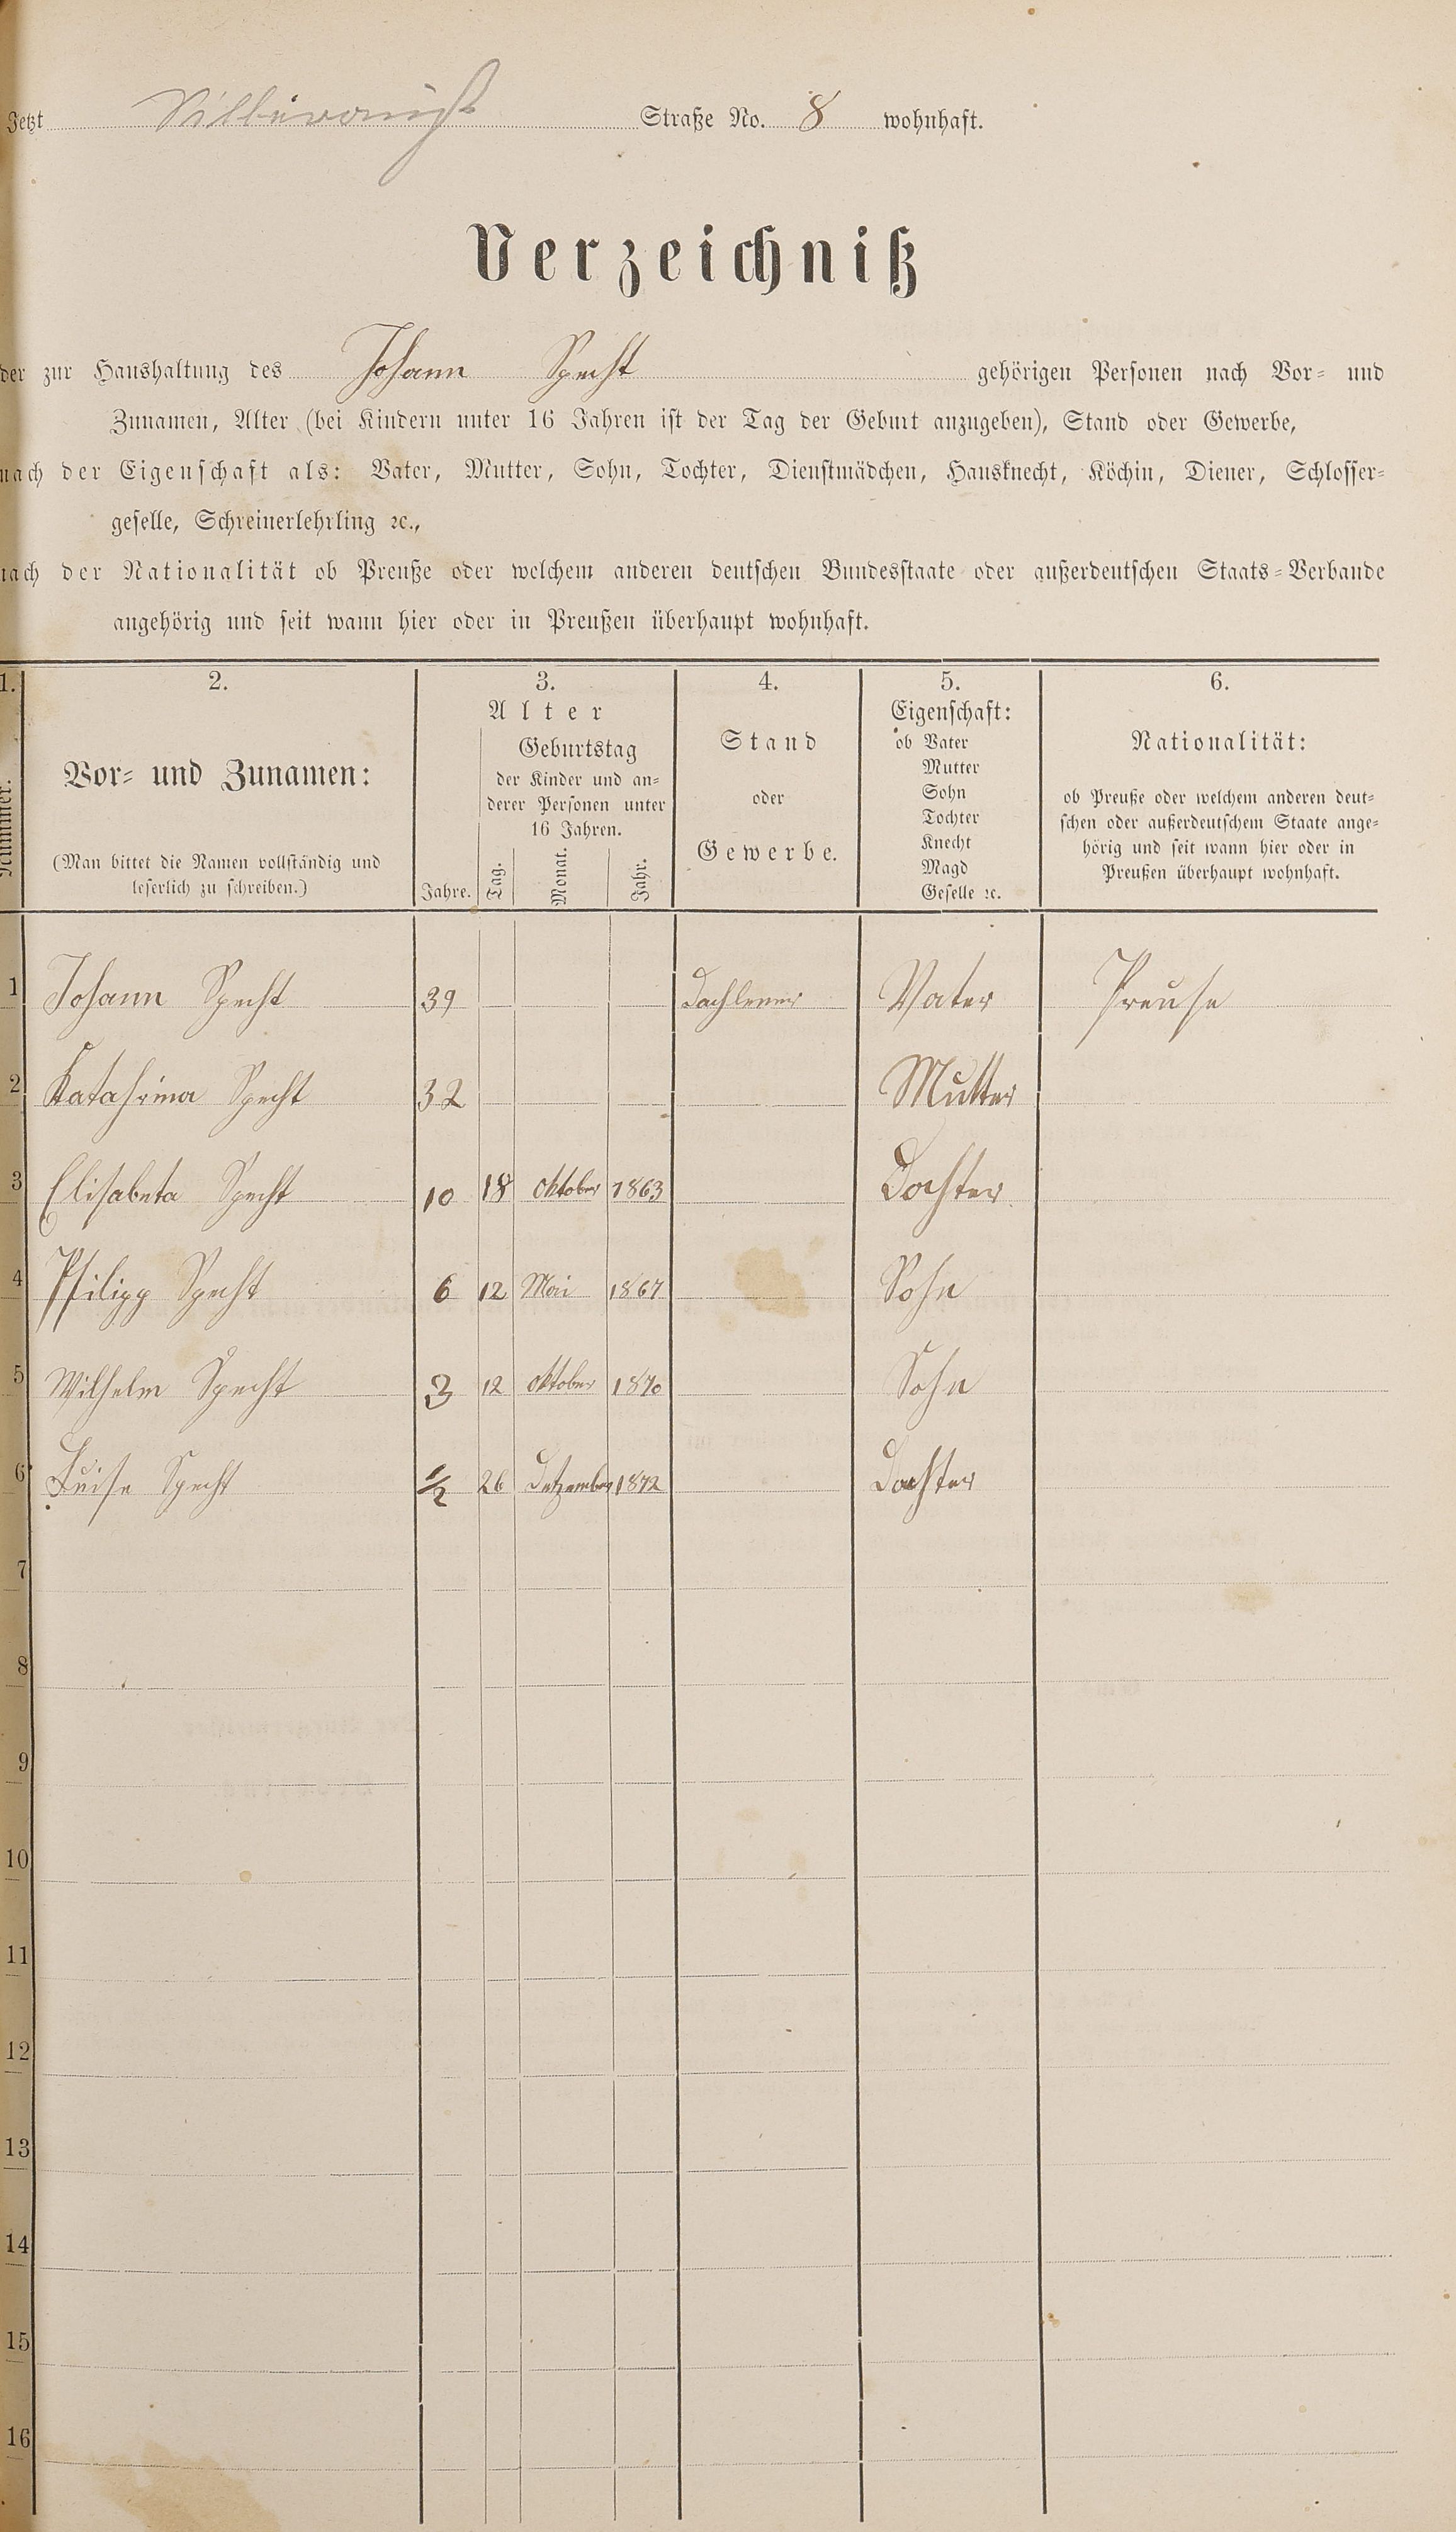 Jetzt Straße No. 8 wohnhaft.
Verzeichniß
der zur Haushaltung des Johann Specht gehörigen Personen nach Vor- und
Zunamen, Alter (bei Kindern unter 16 Jahren ist der Tag der Geburt anzugeben), Stand oder Gewerbe,
nach der Eigenschaft als: Vater, Mutter, Sohn, Tochter, Dienstmädchen, Hausknecht, Köchin, Diener, Schlosser-
geselle, Schreinerlehrling ꝛc.,
nach der Nationalität ob Preuße oder welchem anderen deutschen Bundesstaate oder außerdeutschen Staats-Verbande
angehörig und seit wann hier oder in Preußen überhaupt wohnhaft.
1. 2. 3. 4. 5. 6.
Nummer.
Vor- und Zunamen:
(Man bittet die Namen vollständig und
leserlich zu schreiben.)
Alter
Jahre.
Geburtstag
der Kinder und an-
derer Personen unter
16 Jahren.
Tag. Monat. Jahr.
Stand
oder
Gewerbe.
Eigenschaft:
ob Vater
Mutter
Sohn
Tochter
Knecht
Magd
Geselle ꝛc.
Nationalität:
ob Preuße oder welchem anderen deut-
schen oder außerdeutschem Staate ange-
hörig und seit wann hier oder in
Preußen überhaupt wohnhaft.
1 Johann Specht 39 Vater Preuse
2 Katahrina Specht 32 Mutter
3 Elisabeta Specht 10 18 Oktober 1863 Dochter
4 Philipp Specht 6 12 Mai 1867 Sohn
5 Wilhelm Specht 3 12 Oktober 1870 Sohn
6 Luise Specht 1/2 26 Detzember 1872 Dochter
7
8
9
10
11
12
13
14
15
16